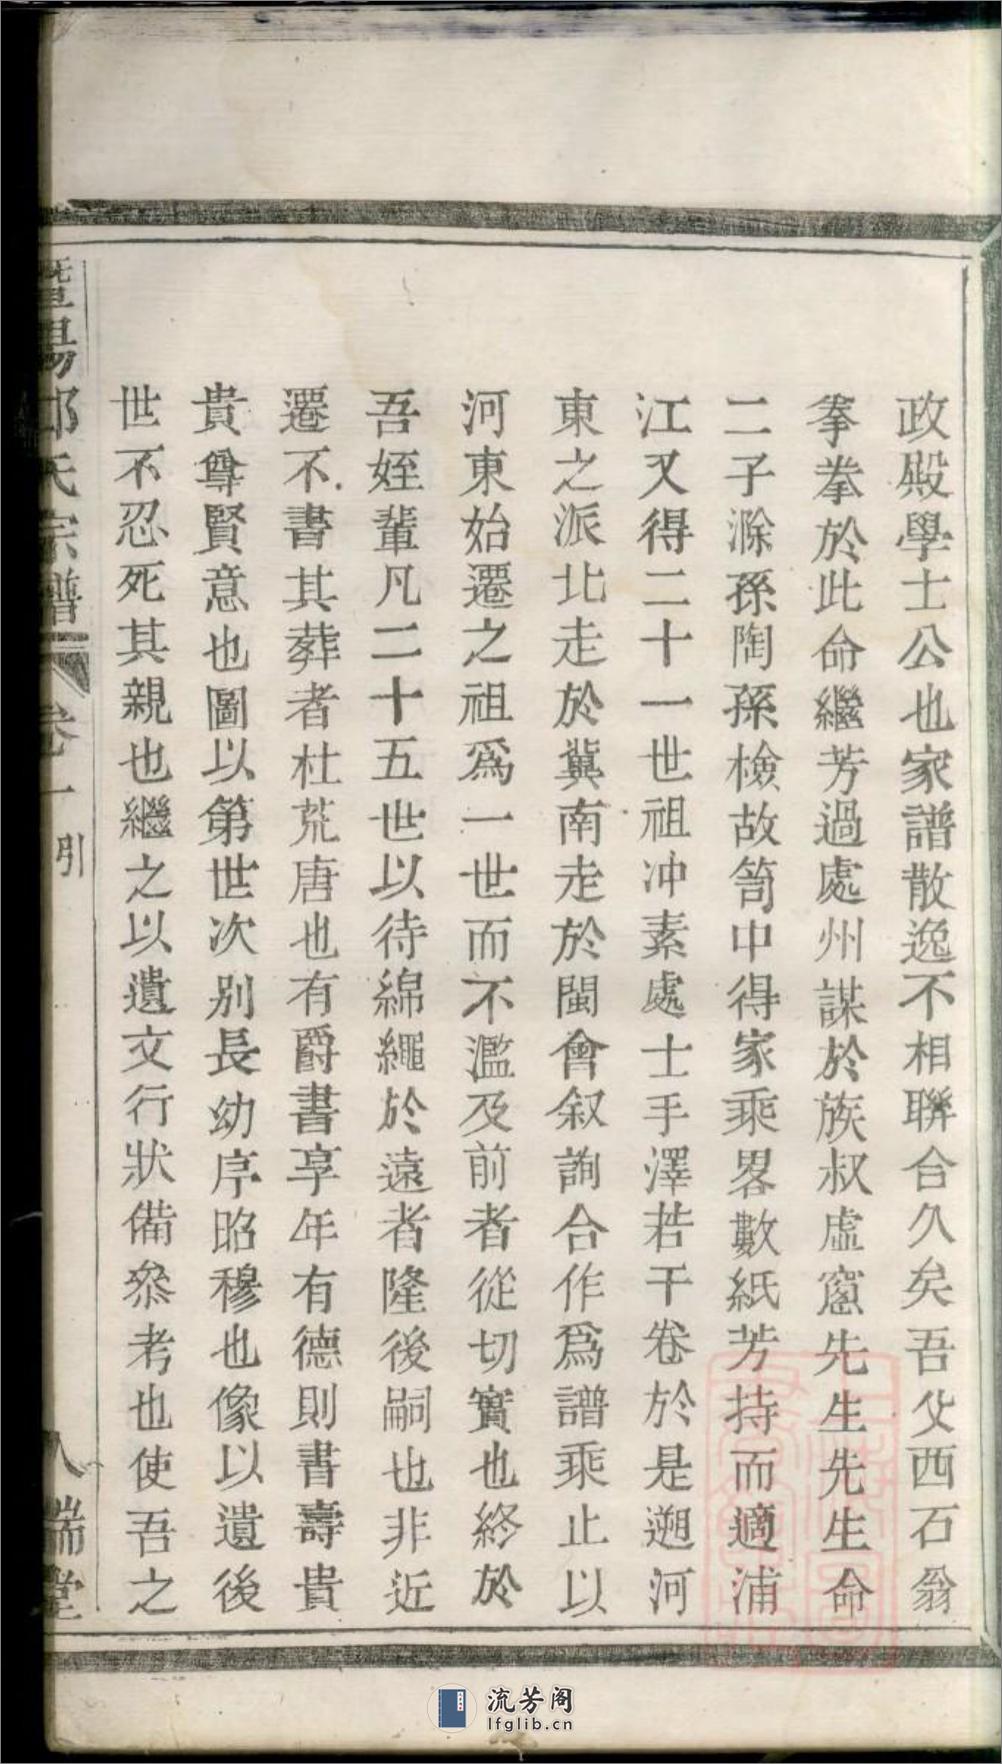 政殿學士公也家譜散逸不相聯合久矣吾父西石翁
拳拳於此命繼芳過處州謀於族叔虛窻先生先生命
二子滁孫陶孫檢故笥中得家乘畧數紙芳持而適浦
江又得二十一世祖冲素處士手澤若干卷於是遡河
東之派北走於冀南走於閩會叙詢合作爲譜乘止以
河東始遷之祖爲一世而不濫及前者從切實也終於
吾姪輩凡二十五世以待綿繩於遠者隆後嗣也非近
遷不書其葬者杜荒唐也有爵書享年有德則書壽貴
貴尊賢意也圖以第世次别長幼序昭穆也像以遺後
世不忍死其親也繼之以遺文行狀備叅考也使吾之
暨陽郎氏宗譜 卷一 引 八 端堂
流芳阁
lfglib.cn